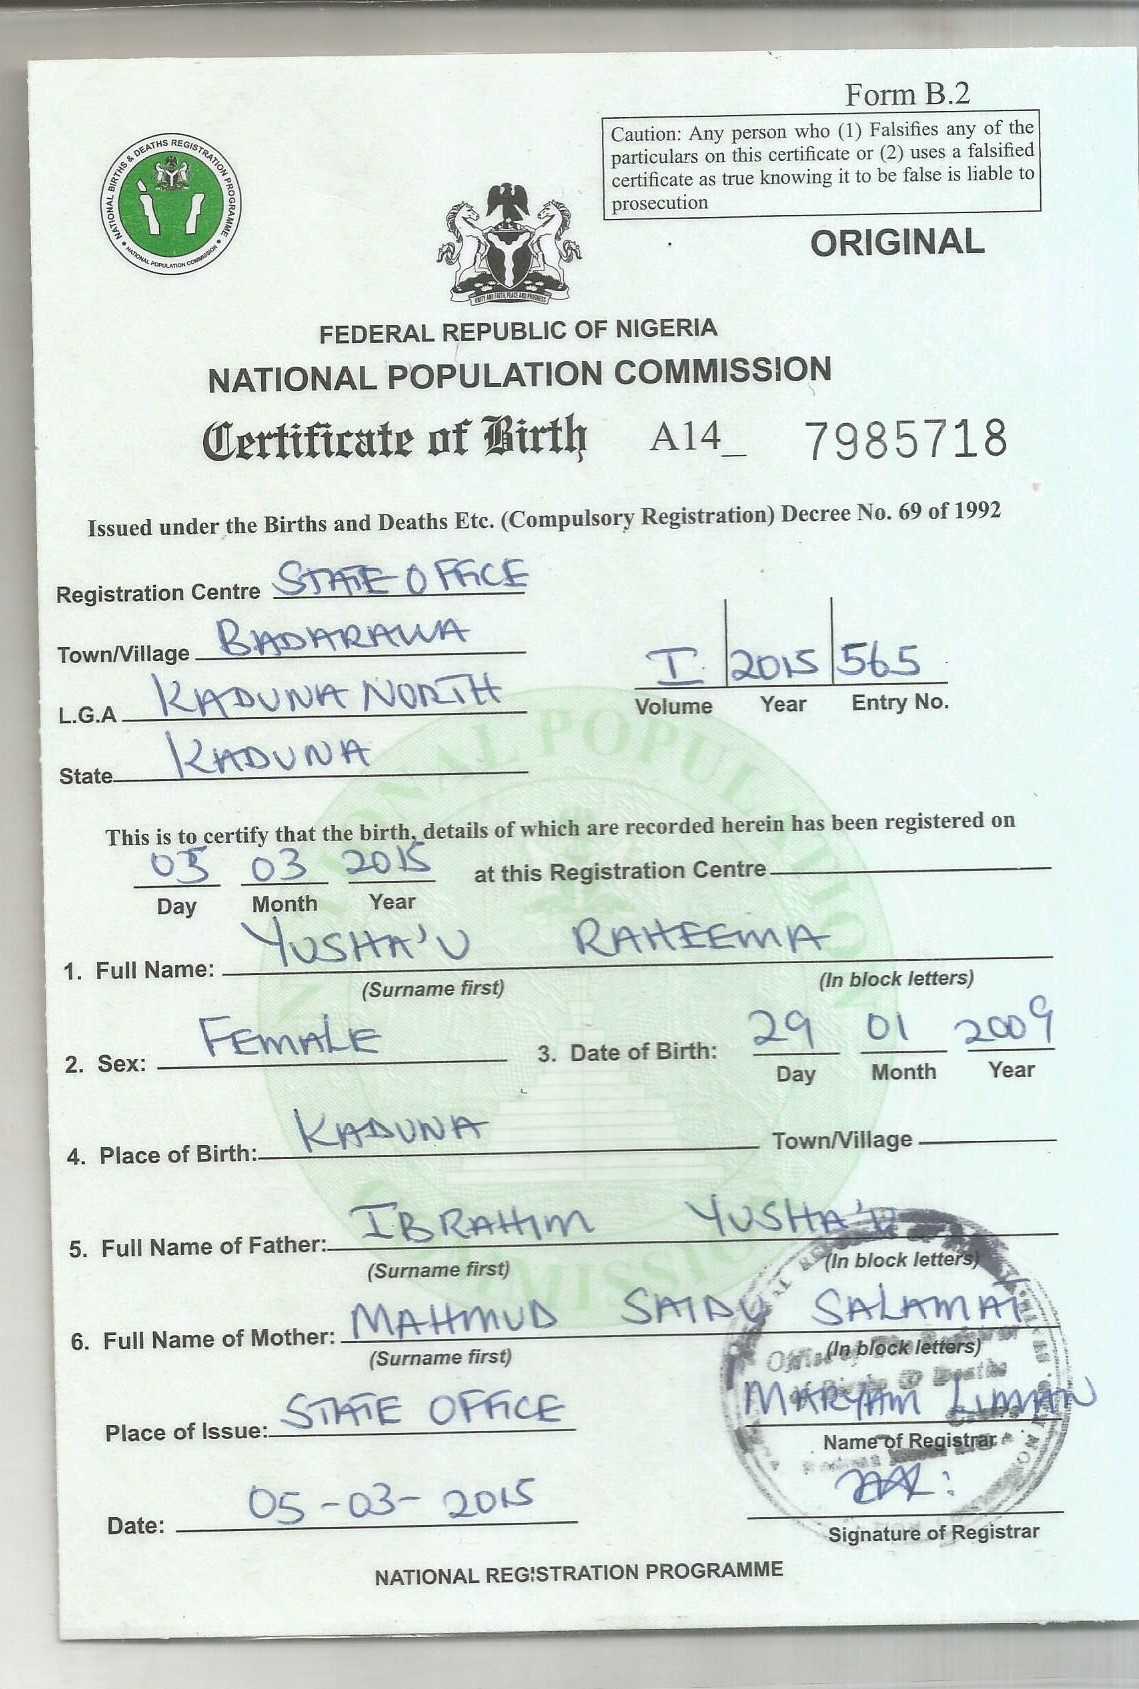 Form B.2
Caution: Any person who (1) Falsifies any of the
particulars on this certificate or (2) uses a falsified
certificate as true knowing it to be false is liable to
prosecution
NATIONAL BIRTHS & DEATHS REGISTRATION PROGRAMME
NATIONAL POPULATION COMMISSION
ORIGINAL
UNITY AND FAITH, PEACE AND PROGRESS
FEDERAL REPUBLIC OF NIGERIA
NATIONAL POPULATION COMMISSION
Certificate of Birth A14_ 7985718
Issued under the Births and Deaths Etc. (Compulsory Registration) Decree No. 69 of 1992
Registration Centre STATE OFFICE
Town/Village BADARAWA
I 2015 565
Volume Year Entry No.
L.G.A KADUNA NORTH
State KADUNA
NATIONAL POPULATION COMMISSION
This is to certify that the birth, details of which are recorded herein has been registered on
03 03 2015 at this Registration Centre
Day Month Year
1. Full Name: YUSHA'U RAHEEMA
(Surname first) (In block letters)
2. Sex: FEMALE 3. Date of Birth: 29 01 2009
Day Month Year
4. Place of Birth: KADUNA Town/Village
5. Full Name of Father: IBRAHIM YUSHA'U
(Surname first) (In block letters)
6. Full Name of Mother: MAHMUD SAIDU SALAMAT
(Surname first) (In block letters)
Office of The Registrar
of Births & Deaths
Place of Issue: STATE OFFICE MARYAM LIMAN
Name of Registrar
Date: 05-03-2015
Signature of Registrar
NATIONAL REGISTRATION PROGRAMME